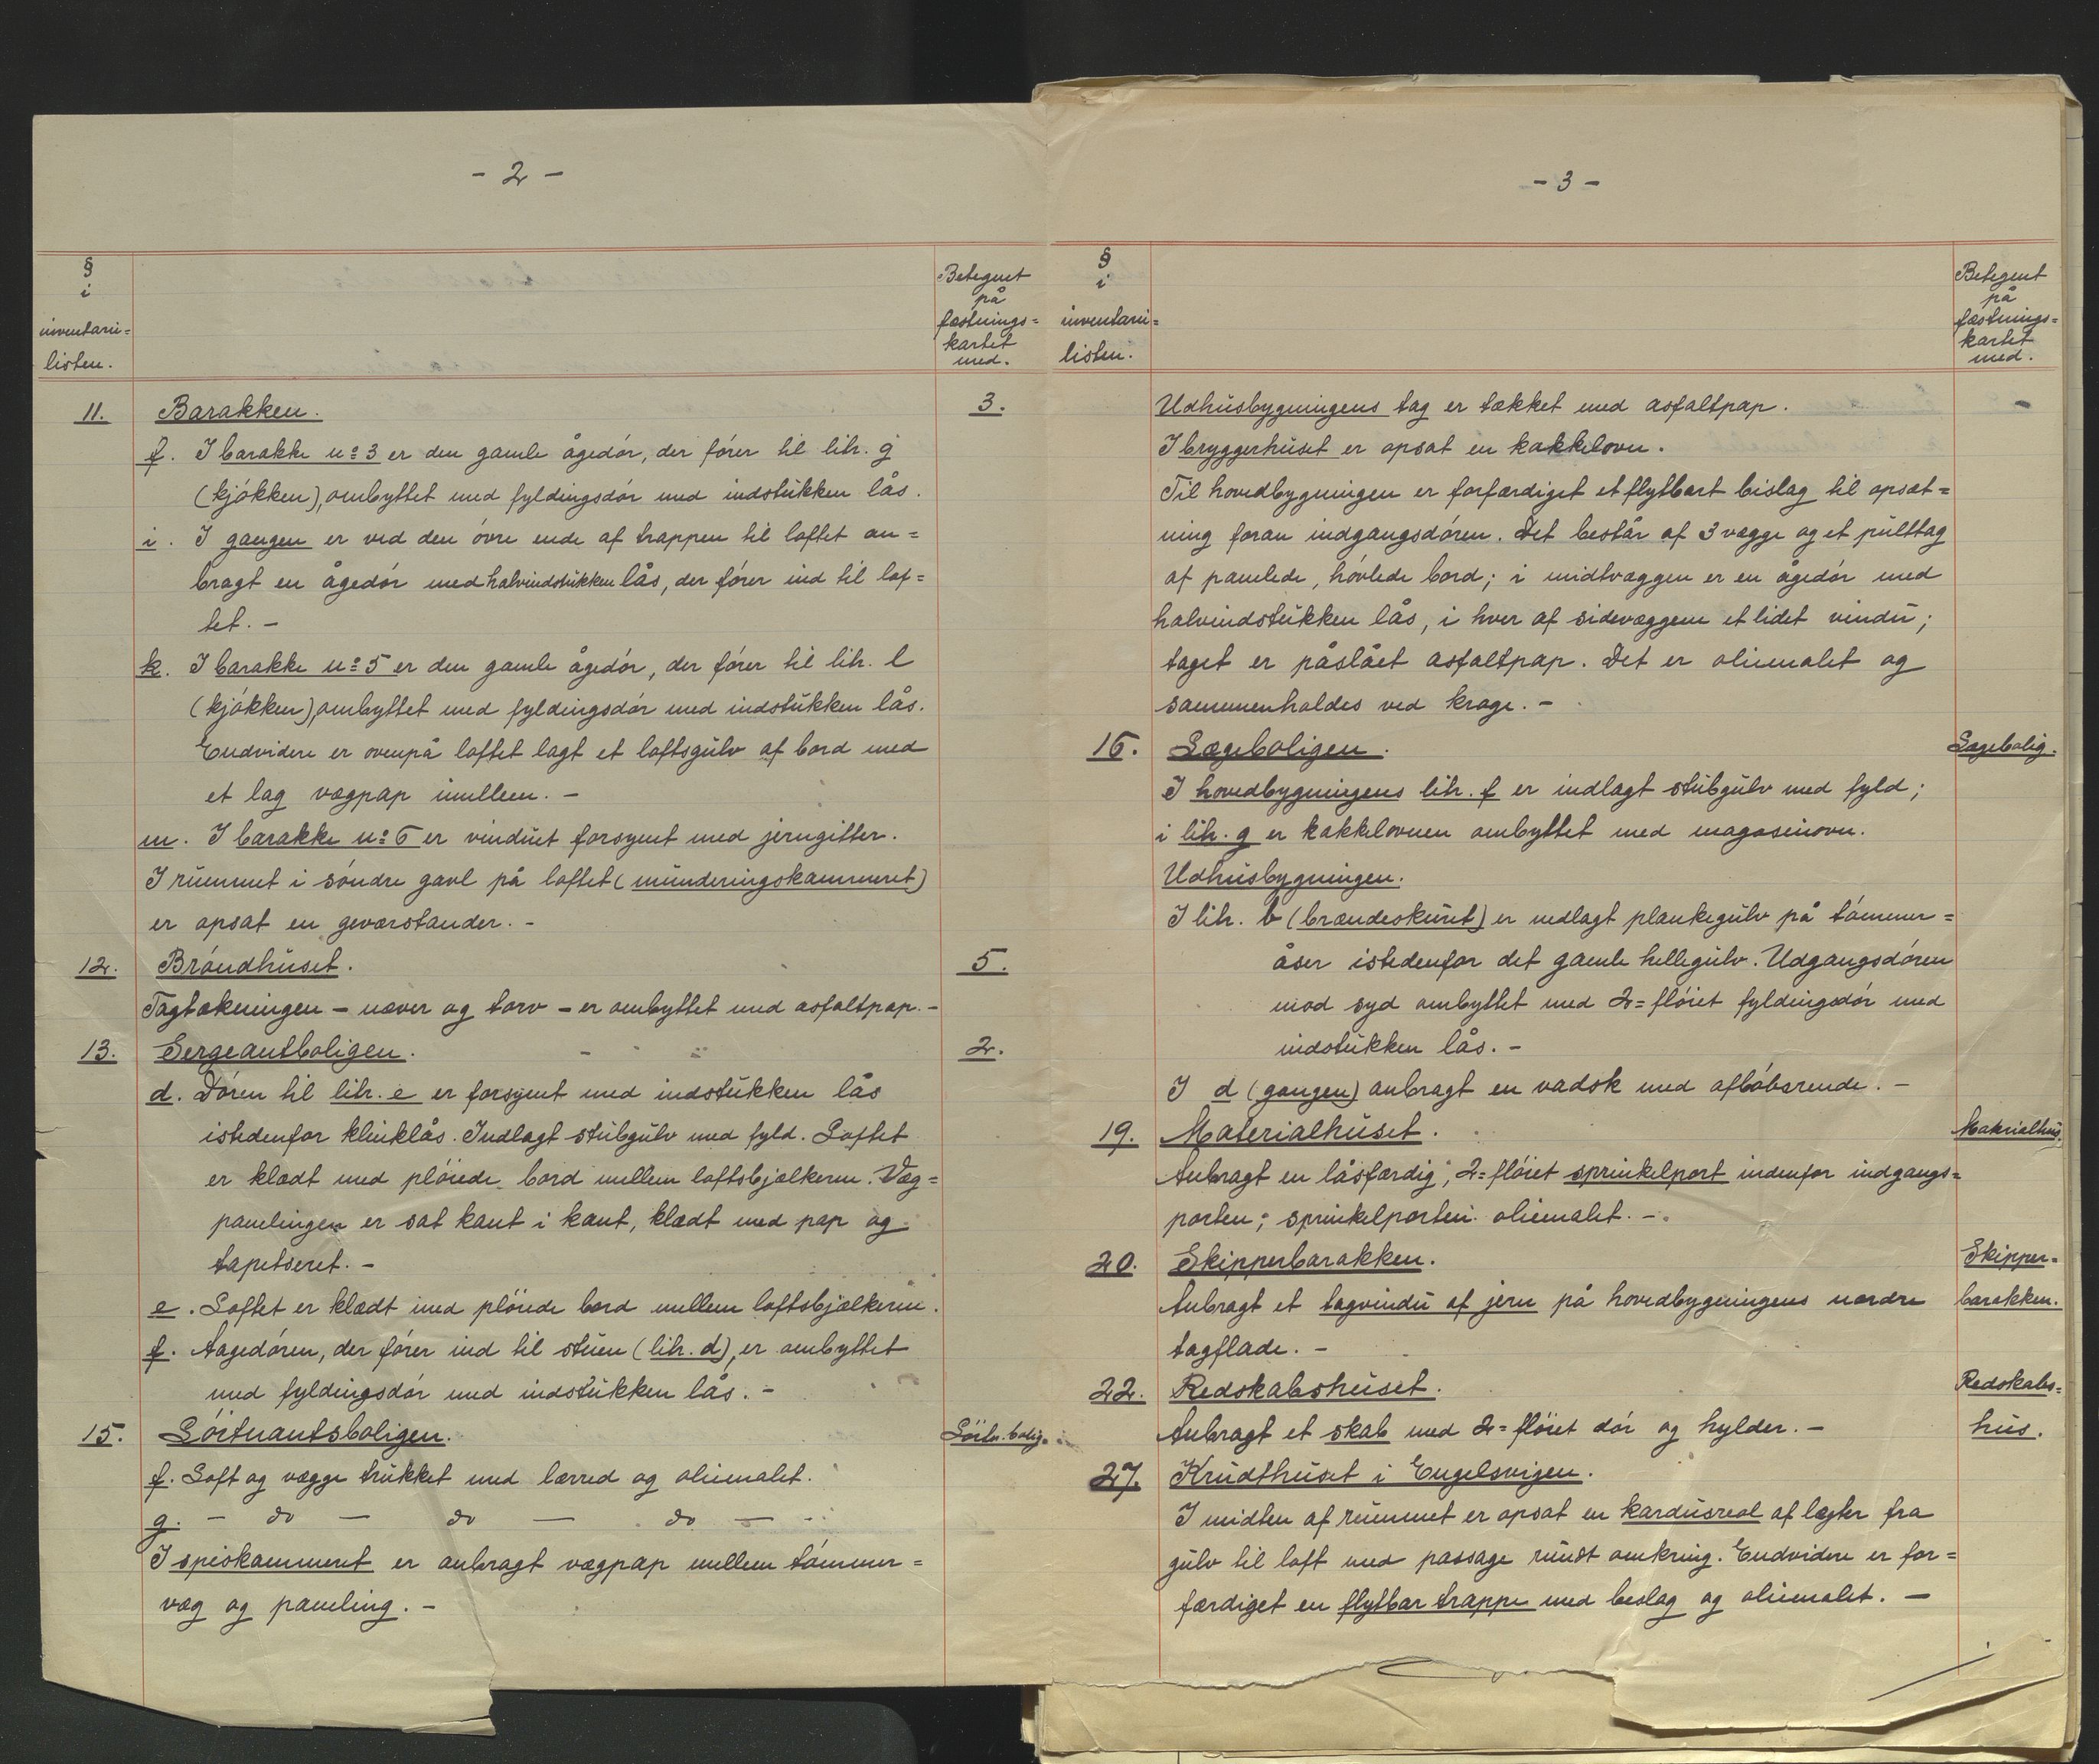 - 2 -
§
i
inventarii=
listen.
Betegnet
på
fæstnings=
kartet
med.
11. Barakken. 3.
f. I barakke nº 3 er den gamle ågedór, der fórer til litr. g
(kjókken), ombyttet med fyldingsdór med indstukken lås.
i. I gangen er ved den óvre ende af trappen til loftet an=
bragt en ågedór med halvindstukken lås, der fórer ind til lof=
tet. -
k. I barakke nº 5 er den gamle ågedór, der fórer til litr. l
(kjókken), ombyttet med fyldingsdór med indstukken lås.
Endvidere er ovenpå loftet lagt et loftsgulv af bord med
et lag vægpap imellem. -
m. I barakke nº 6 er vinduet forsynet med jerngitter.
I rummet i sóndre gavl på loftet (munderingskammeret)
er opsat en geværstander. -
12. Bróndhuset. 5.
Tagtækningen - næver og torv - er ombyttet med asfaltpap. -
13. Sergeantboligen. 2.
d. Dóren til litr. e er forsynet med indstukken lås
istedenfor klinklås. Indlagt stubgulv med fyld. Loftet
er klædt med plóiede bord mellem loftsbjælkerne. Væg=
panelingen er sat kant i kant, klædt med pap og
tapetseret. -
e. Loftet er klædt med plóiede bord mellem loftsbjælkerne.
f. Aagedóren, der fórer ind til stuen (litr. d), er ombyttet
med fyldingsdór med indstukken lås. -
15. Lóitnantsboligen. Lóitn. bolig.
f. Loft og vægge trukket med lærred og oliemalet.
g. - do - do - do -
I spiskammeret er anbragt vægpap mellem tómmer=
væg og paneling. -
- 3 -
§
i
inventarii=
listen.
Betegnet
på
fæstnings=
kartet
med.
Udhusbygningens tag er tækket med asfaltpap. -
I bryggerhuset er opsat en kakkelovn.
Til hovedbygningen er forfærdiget et flytbart bislag til opsæt=
ning foran indgangsdóren. Det består af 3 vægge og et pulttag
af panelede, hóvlede bord; i midtvæggen er en ågedór med
halvindstukken lås, i hver af sidevæggene et lidet vindu;
taget er påslået asfaltpap. Det er oliemalet og
sammenholdes ved kroge. -
16. Lægeboligen. Lægebolig.
I hovedbygningens litr. f er indlagt stubgulv med fyld;
i litr. g er kakkelovnen ombyttet med magasinovn.
Udhusbygningen.
I litr. b (brændeskuret) er nedlagt plankegulv på tómmer=
åser istedenfor det gamle hellegulv. Udgangsdóren
mod syd ombyttet med 2=flóiet fyldingsdór med
indstukken lås. -
I d (gangen) anbragt en vadsk med aflóbsrende. -
19. Materialhuset. Materialhus.
Anbragt en låsfærdig, 2=flóiet sprinkelport indenfor indgangs=
porten; sprinkelporten oliemalet. -
20. Skipperbarakken. Skipper=
Anbragt et tagvindu af jern på hovedbygningens nordre barakken.
tagflade. -
22. Redskabshuset. Redskabs=
Anbragt et skab med 2=flóiet dór og hylder. - hus.
27. Krudthuset i Engelsvigen.
I midten af rummet er opsat en kardusreol af lægter fra
gulv til loft med passage rundt omkring. Endvidere er for=
færdiget en flytbar trappe med beslag og oliemalet. -